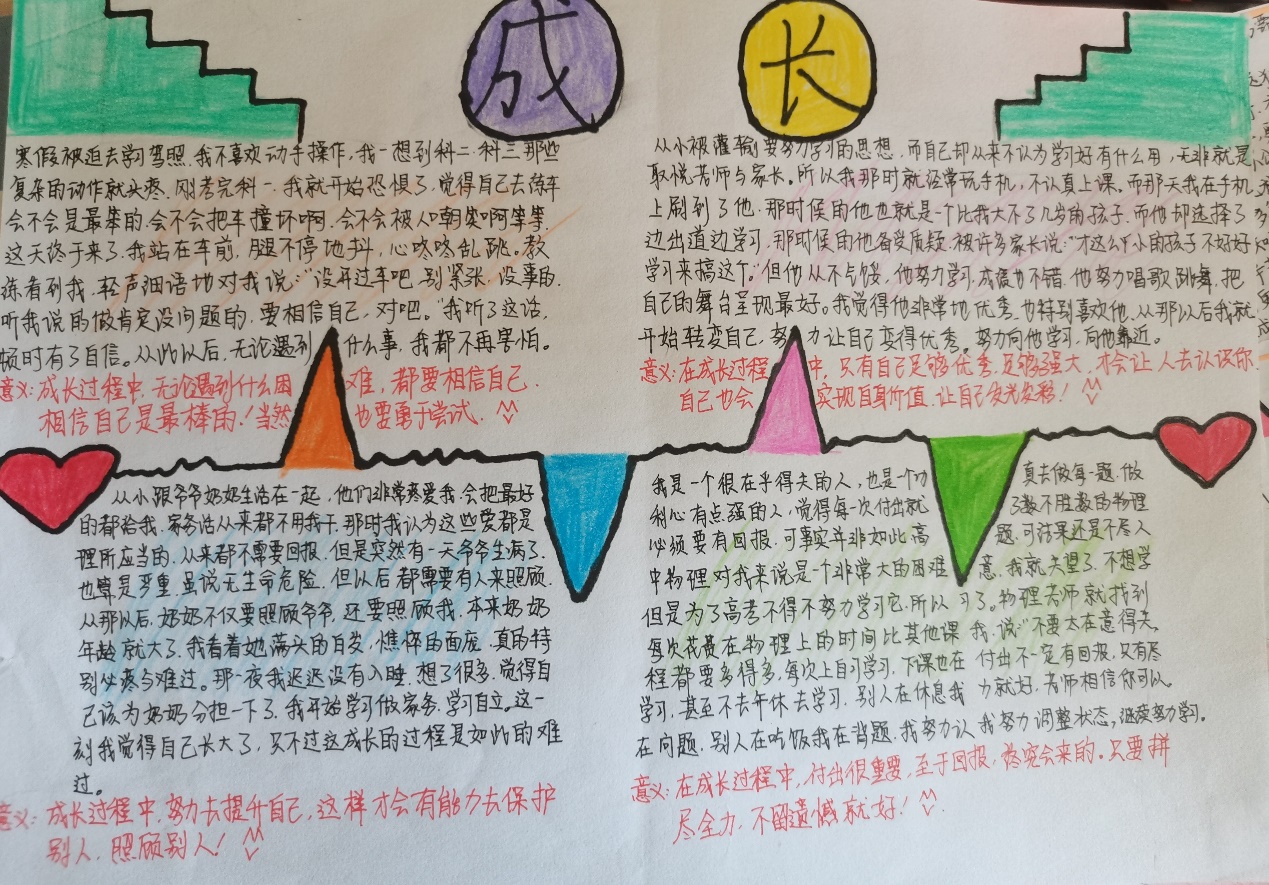 成长
寒假被迫去学驾照.我不喜欢动手操作,我一想到科二.科三那些
复杂的动作就头疼.刚考完科一.我就开始恐惧了,觉得自己去练车
会不会是最笨的,会不会把车撞坏啊,会不会被人嘲笑啊等等.
这天终于来了.我站在车前,腿不停地抖,心咚咚乱跳。教
练看到我,轻声细语地对我说:“没开过车吧.别紧张.没事的.
听我说的做肯定没问题的.要相信自己,对吧。”我听了这话,
顿时有了自信。从此以后,无论遇到什么事,我都不再害怕。
意义:成长过程中,无论遇到什么困难,都要相信自己.
相信自己是最棒的!当然也要勇于尝试.
从小被灌输要努力学习的思想.而自己却从来不认为学习好有什么用,无非就是
取悦老师与家长。所以我那时就经常玩手机,不认真上课。而那天我在手机
上刷到了他.那时候的他也就是一个比我大不了几岁的孩子.而他却选择了
边出道边学习.那时候的他备受质疑.被许多家长说:“才这么小的孩子不好好
学习来搞这个。”但他从不气馁,他努力学习,成绩也不错.他努力唱歌跳舞.把
自己的舞台呈现最好。我觉得他非常地优秀.也特别喜欢他.从那以后我就
开始转变自己,努力让自己变得优秀。努力向他学习.向他靠近。
意义:在成长过程中,只有自己足够优秀.足够强大,才会让人去认识你.
自己也会实现自身价值.让自己发光发热!
从小跟爷爷奶奶生活在一起,他们非常疼爱我.会把最好
的都给我.家务活从来都不用我干.那时我认为这些爱都是
理所应当的.从来都不需要回报.但是突然有一天爷爷生病了.
也算是严重.虽说无生命危险.但以后都需要有人来照顾.
从那以后.奶奶不仅要照顾爷爷,还要照顾我.本来奶奶
年龄就大了.我看着她满头的白发,憔悴的面庞.真的特
别心疼与难过。那一夜我迟迟没有入睡.想了很多.觉得自
己该为奶奶分担一下了.我开始学习做家务,学习自立。这一
刻我觉得自己长大了.只不过这成长的过程是如此的难
过。
意义:成长过程中.努力去提升自己,这样才会有能力去保护
别人.照顾别人!
我是一个很在乎得失的人,也是个功
利心有点强的人.觉得每一次付出就
必须要有回报.可事实并非如此.高
中物理对我来说是一个非常大的困难
但是为了高考不得不努力学习它.所以
每次花费在物理上的时间比其他课
程都要多得多,每次上自习学习.下课也在
学习.甚至不去午休去学习.别人在休息我
在问题.别人在吃饭我在背题.我努力认
真去做每一题.做
了数不胜数的物理
题.可结果还是不尽人
意.我就失望了.不想学
习了。物理老师就找到
我.说:“不要太在意得失.
付出不一定有回报.只有尽
力就好,老师相信你可以。
我努力调整状态,继续努力学习。
意义:在成长过程中,付出很重要,至于回报,终究会来的。只要拼
尽全力.不留遗憾就好!